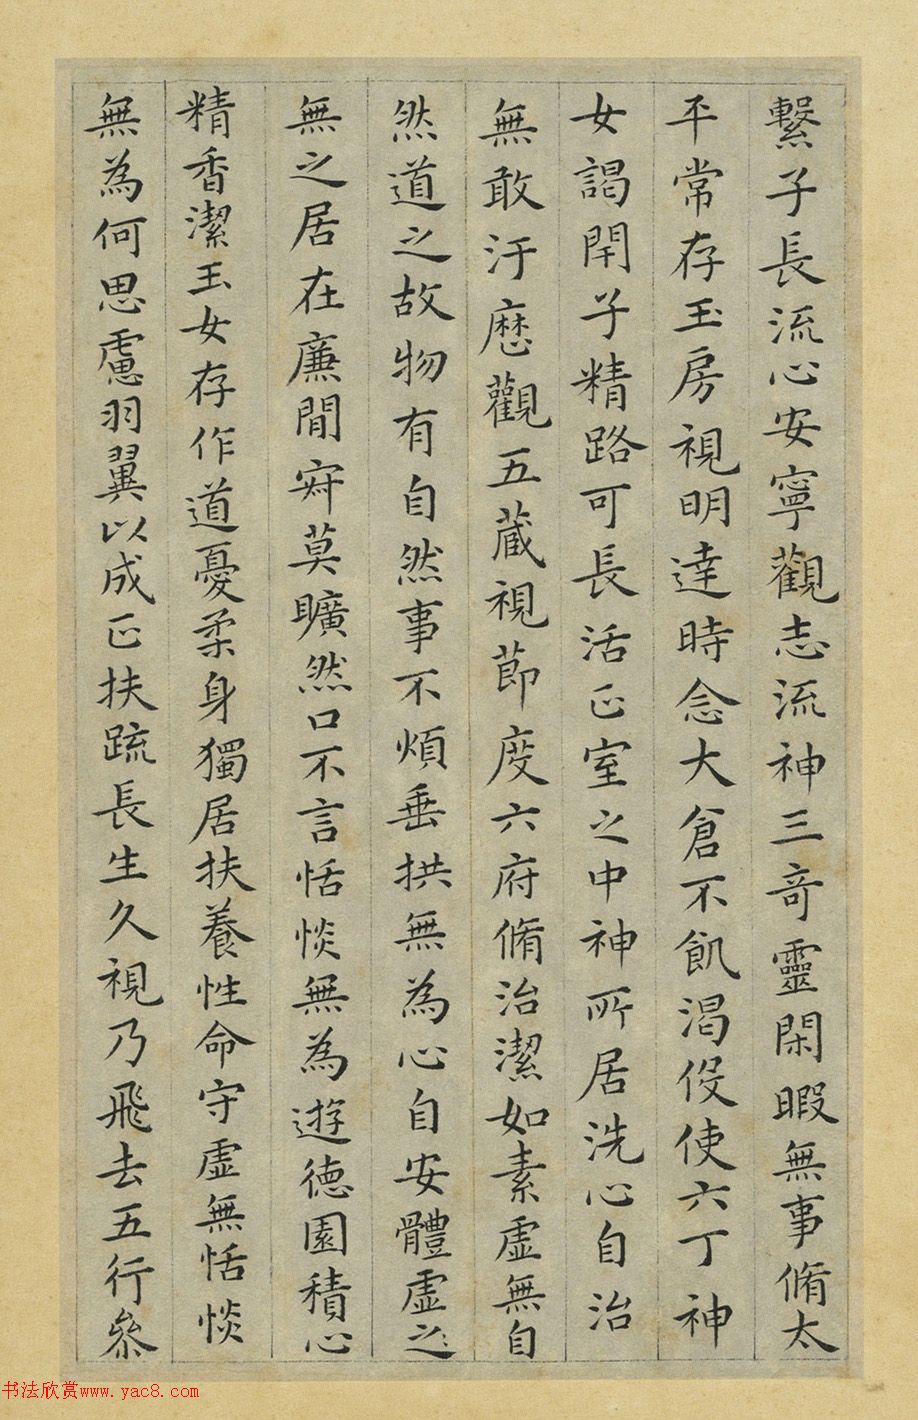 繫子長流心安寧觀志流神三奇靈閑暇無事脩太
平常存玉房視明達時念大倉不飢渴伇使六丁神
女謁閇子精路可長活正室之中神所居洗心自治
無敢汙歷觀五藏視節度六府脩治潔如素虛無自
然道之故物有自然事不煩垂拱無為心自安體虛之
無之居在廉間寂莫曠然口不言恬惔無為遊德園積心
精香潔玉女存作道憂柔身獨居扶養性命守虛無恬惔
無為何思慮羽翼以成正扶疏長生久視乃飛去五行參
书法欣赏www.yac8.com